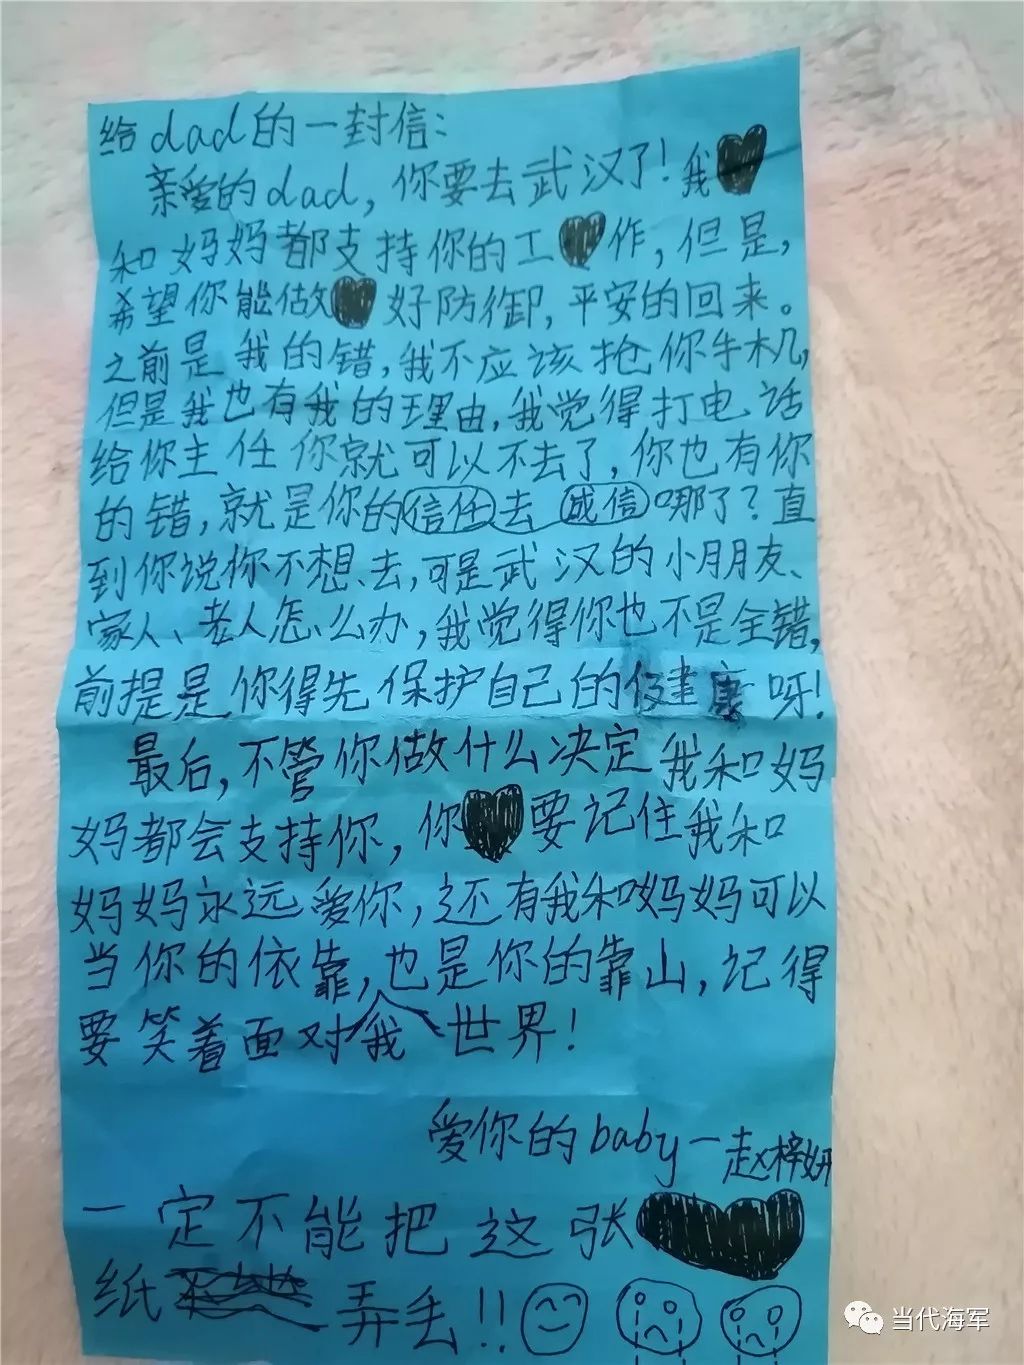 给dad的一封信:
亲爱的dad,你要去武汉了!我
和妈妈都支持你的工作,但是,
希望你能做好防御,平安的回来。
之前是我的错,我不应该抢你手机,
但是我也有我的理由,我觉得打电话
给你主任你就可以不去了,你也有你
的错,就是你的信任去诚信哪了?直
到你说你不想去,可是武汉的小朋友、
家人、老人怎么办,我觉得你也不是全错,
前提是你得先保护自己的健康呀!
最后,不管你做什么决定我和妈
妈都会支持你,你要记住我和
妈妈永远爱你,还有我和妈妈可以
当你的依靠,也是你的靠山,记得
要笑着面对我世界!
爱你的baby—赵梓妍
一定不能把这张
纸弄丢!!
当代海军